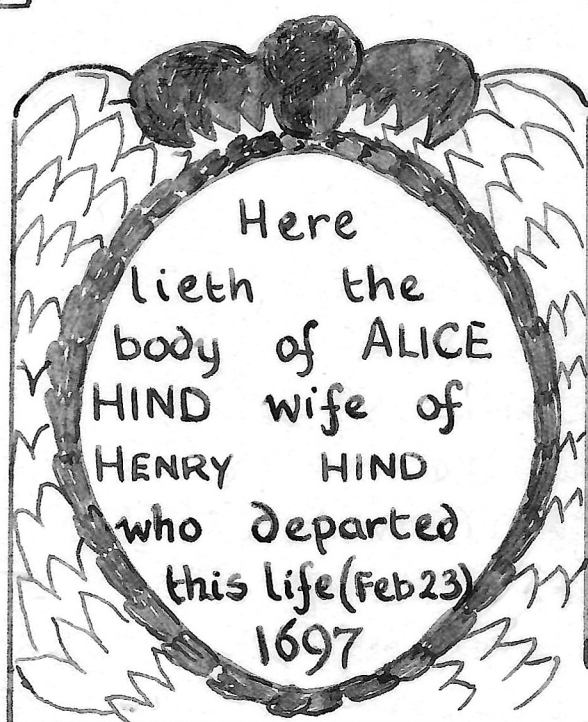 Here
lieth the
body of ALICE
HIND wife of
HENRY HIND
who departed
this life (Feb 23)
1697